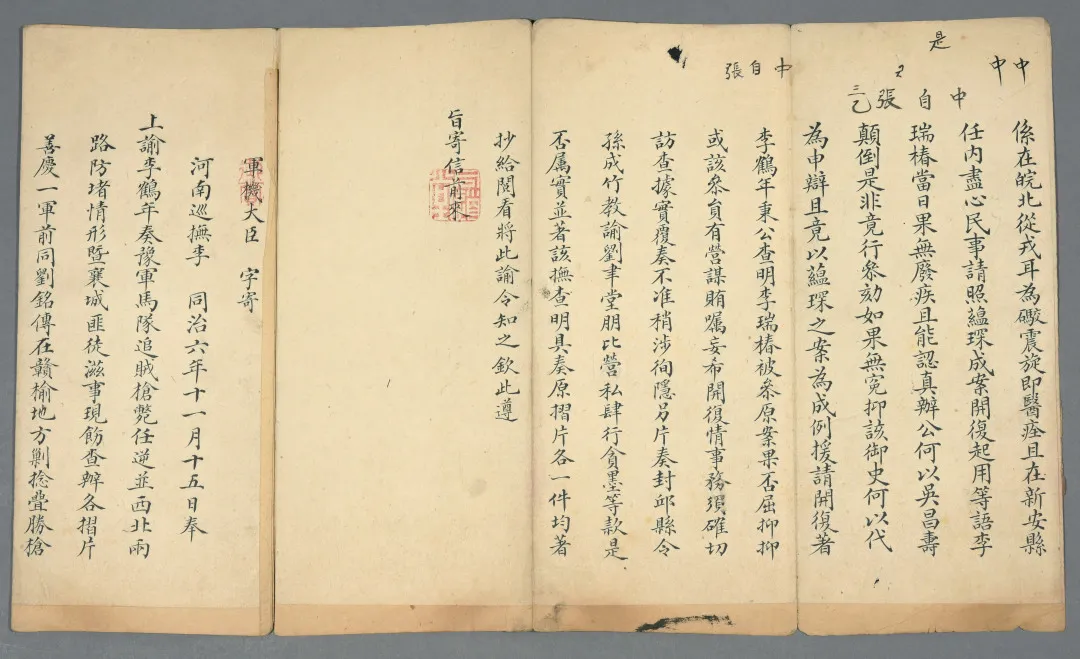 是
中
中
中自張
三乙
中自張
係在皖北從戎耳為礮震旋即醫痊且在新安縣
任內盡心民事請照蘊琛成案開復起用等語李
瑞椿當日果無廢疾且能認真辦公何以吳昌壽
顛倒是非竟行叅劾如果無冤抑該御史何以代
為申辯且竟以蘊琛之案為成例援請開復著
李鶴年秉公查明李瑞椿被叅原案果否屈抑抑
或該叅員有營謀賄囑妄希開復情事務須確切
訪查據實覆奏不准稍涉徇隱另片奏封邱縣令
孫成竹教諭劉聿堂朋比營私肆行貪墨等款是
否属實並著該撫查明具奏原摺片各一件均著
抄給閱看將此諭令知之欽此遵
旨寄信前來
軍機大臣 字寄
河南巡撫李 同治六年十一月十五日奉
上諭李鶴年奏豫軍馬隊追賊槍斃任逆並西北兩
路防堵情形暨襄城匪徒滋事現飭查辦各摺片
善慶一軍前同劉銘傳在贛榆地方剿捻疊勝槍